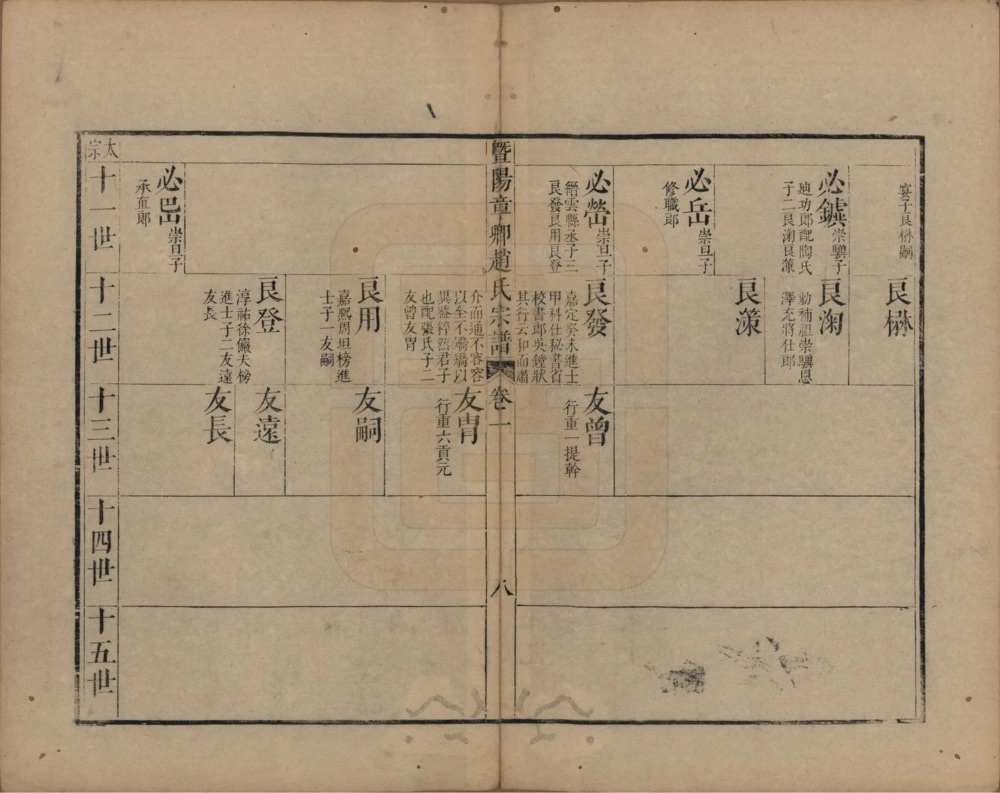 良楙
必鑢 崇驥子
迪功郎配陶氏
子二良淗良策
良淗
勑補祖崇驥恩
澤充將仕郎
良策
必岳 崇旦子
修職郎
必䇔 崇旦子
縉雲縣丞子三
良發良用良登
良發
嘉定癸未進士
甲科仕秘書省
校書郎吳鏜狀
其行云和而肅
友曾
行重一提幹
暨陽章卿趙氏宗譜
卷一
八
介而通不容容
以至不矯矯以
異葢粹然君子
也配張氏子二
友曾友冑
友冑
行重六貢元
良用
嘉熙周坦榜進
士子一友嗣
友嗣
良登
淳祐徐儼夫榜
進士子二友遠
友長
友遠
友長
必岊 崇旦子
承直郎
太宗
十一世
十二世
十三世
十四世
十五世